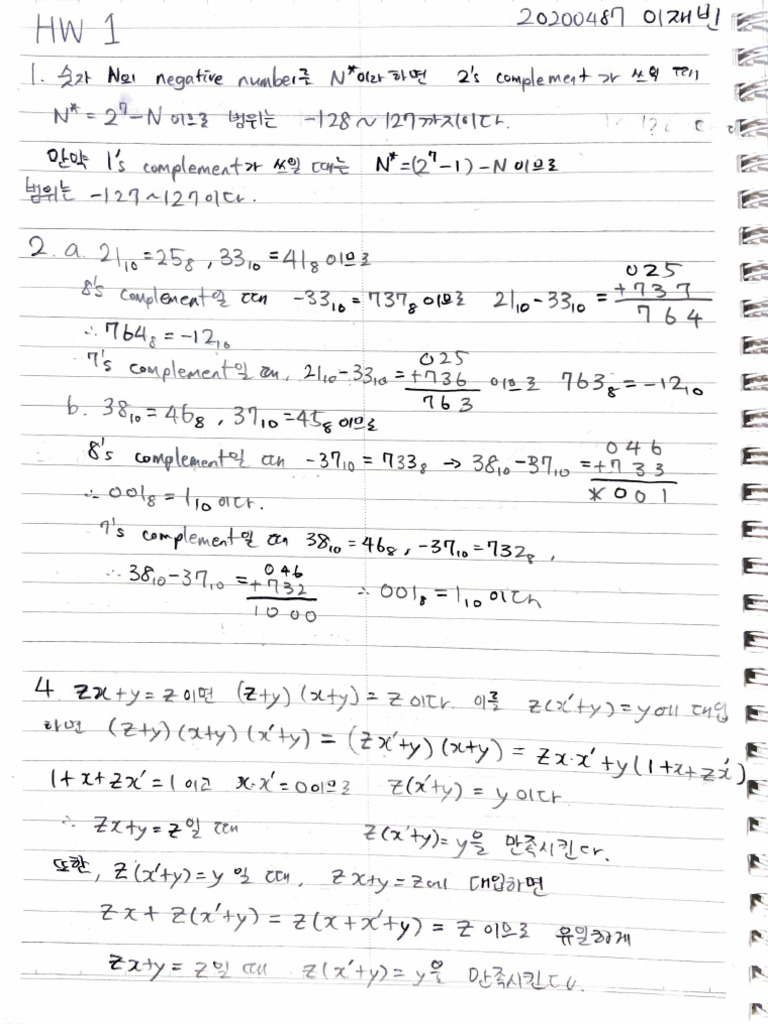 20200487 이재빈
HW 1
1. 숫자 N의 negative number를 N*이라 하면 2's complement가 쓰일 때
N* = 2⁷-N 이므로 범위는 -128 ~ 127까지이다.
만약 1's complement가 쓰일 때는 N*=(2⁷-1)-N 이므로
범위는 -127 ~ 127이다.
2. a. 21₁₀=25₈, 33₁₀=41₈ 이므로
025
8's complement일 때 -33₁₀=737₈ 이므로 21₁₀-33₁₀ = +737
764
∴ 764₈ = -12₁₀
025
7's complement일 때, 21₁₀-33₁₀ = +736 이므로 763₈ = -12₁₀
763
b. 38₁₀=46₈, 37₁₀=45₈ 이므로
046
8's complement일 때 -37₁₀ = 733₈ → 38₁₀-37₁₀ = +733
001
∴ 001₈ = 1₁₀ 이다.
7's complement일 때 38₁₀=46₈, -37₁₀=732₈,
046
∴ 38₁₀-37₁₀ = +732 ∴ 001₈ = 1₁₀ 이다
1000
4 zx+y=z 이면 (z+y)(x+y)=z 이다. 이를 z(x'+y)=y에 대입
하면 (z+y)(x+y)(x'+y) = (zx'+y)(x+y) = zx·x'+y(1+x+zx')
1+x+zx'=1 이고 x·x'=0 이므로 z(x'+y) = y 이다
∴ zx+y=z일 때 z(x'+y)=y을 만족시킨다.
또한, z(x'+y)=y 일 때, zx+y=z에 대입하면
zx + z(x'+y) = z(x+x'+y) = z 이므로 유일하게
zx+y=z일 때 z(x'+y)=y을 만족시킨다.